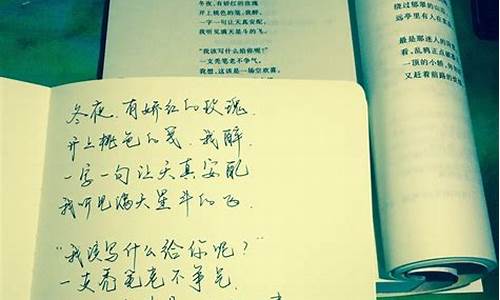 冬夜,有娇红的玫瑰
开上桃色的笺,我醉,
一字一句让天真安配,
我听见满天星斗的飞。
“我该写什么给你呢?”
一支秃笔老不争气,
我想,这该是一场空欢喜,
远亭里有人在
最是那迷人的
看,乱鸦正点
一顶的小轿,
又赶着前路的
冬夜,有娇红的玫瑰,
开上桃色的笺,我醉,
一字一句让天真安配
我听见满天星斗的飞.
“我该写什么给你呢?”
一支秃笔老不争气.